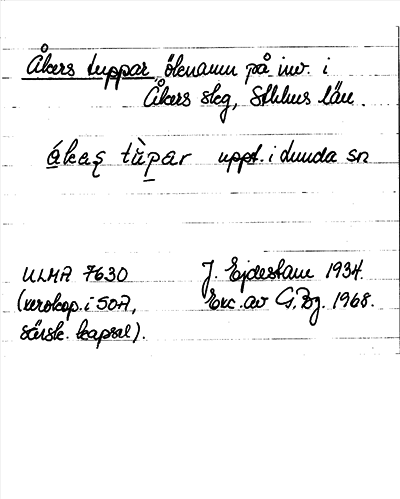 Åkers tuppar, öknamn på inv. i
Åkers skg, Sthlms län.
ákaș tùpar uppt. i Lunda sn
ULMA 7630
(xerokop. i SOA,
särsk. kapsel).
J. Ejdestam 1934.
Exc. av G. Bg. 1968.